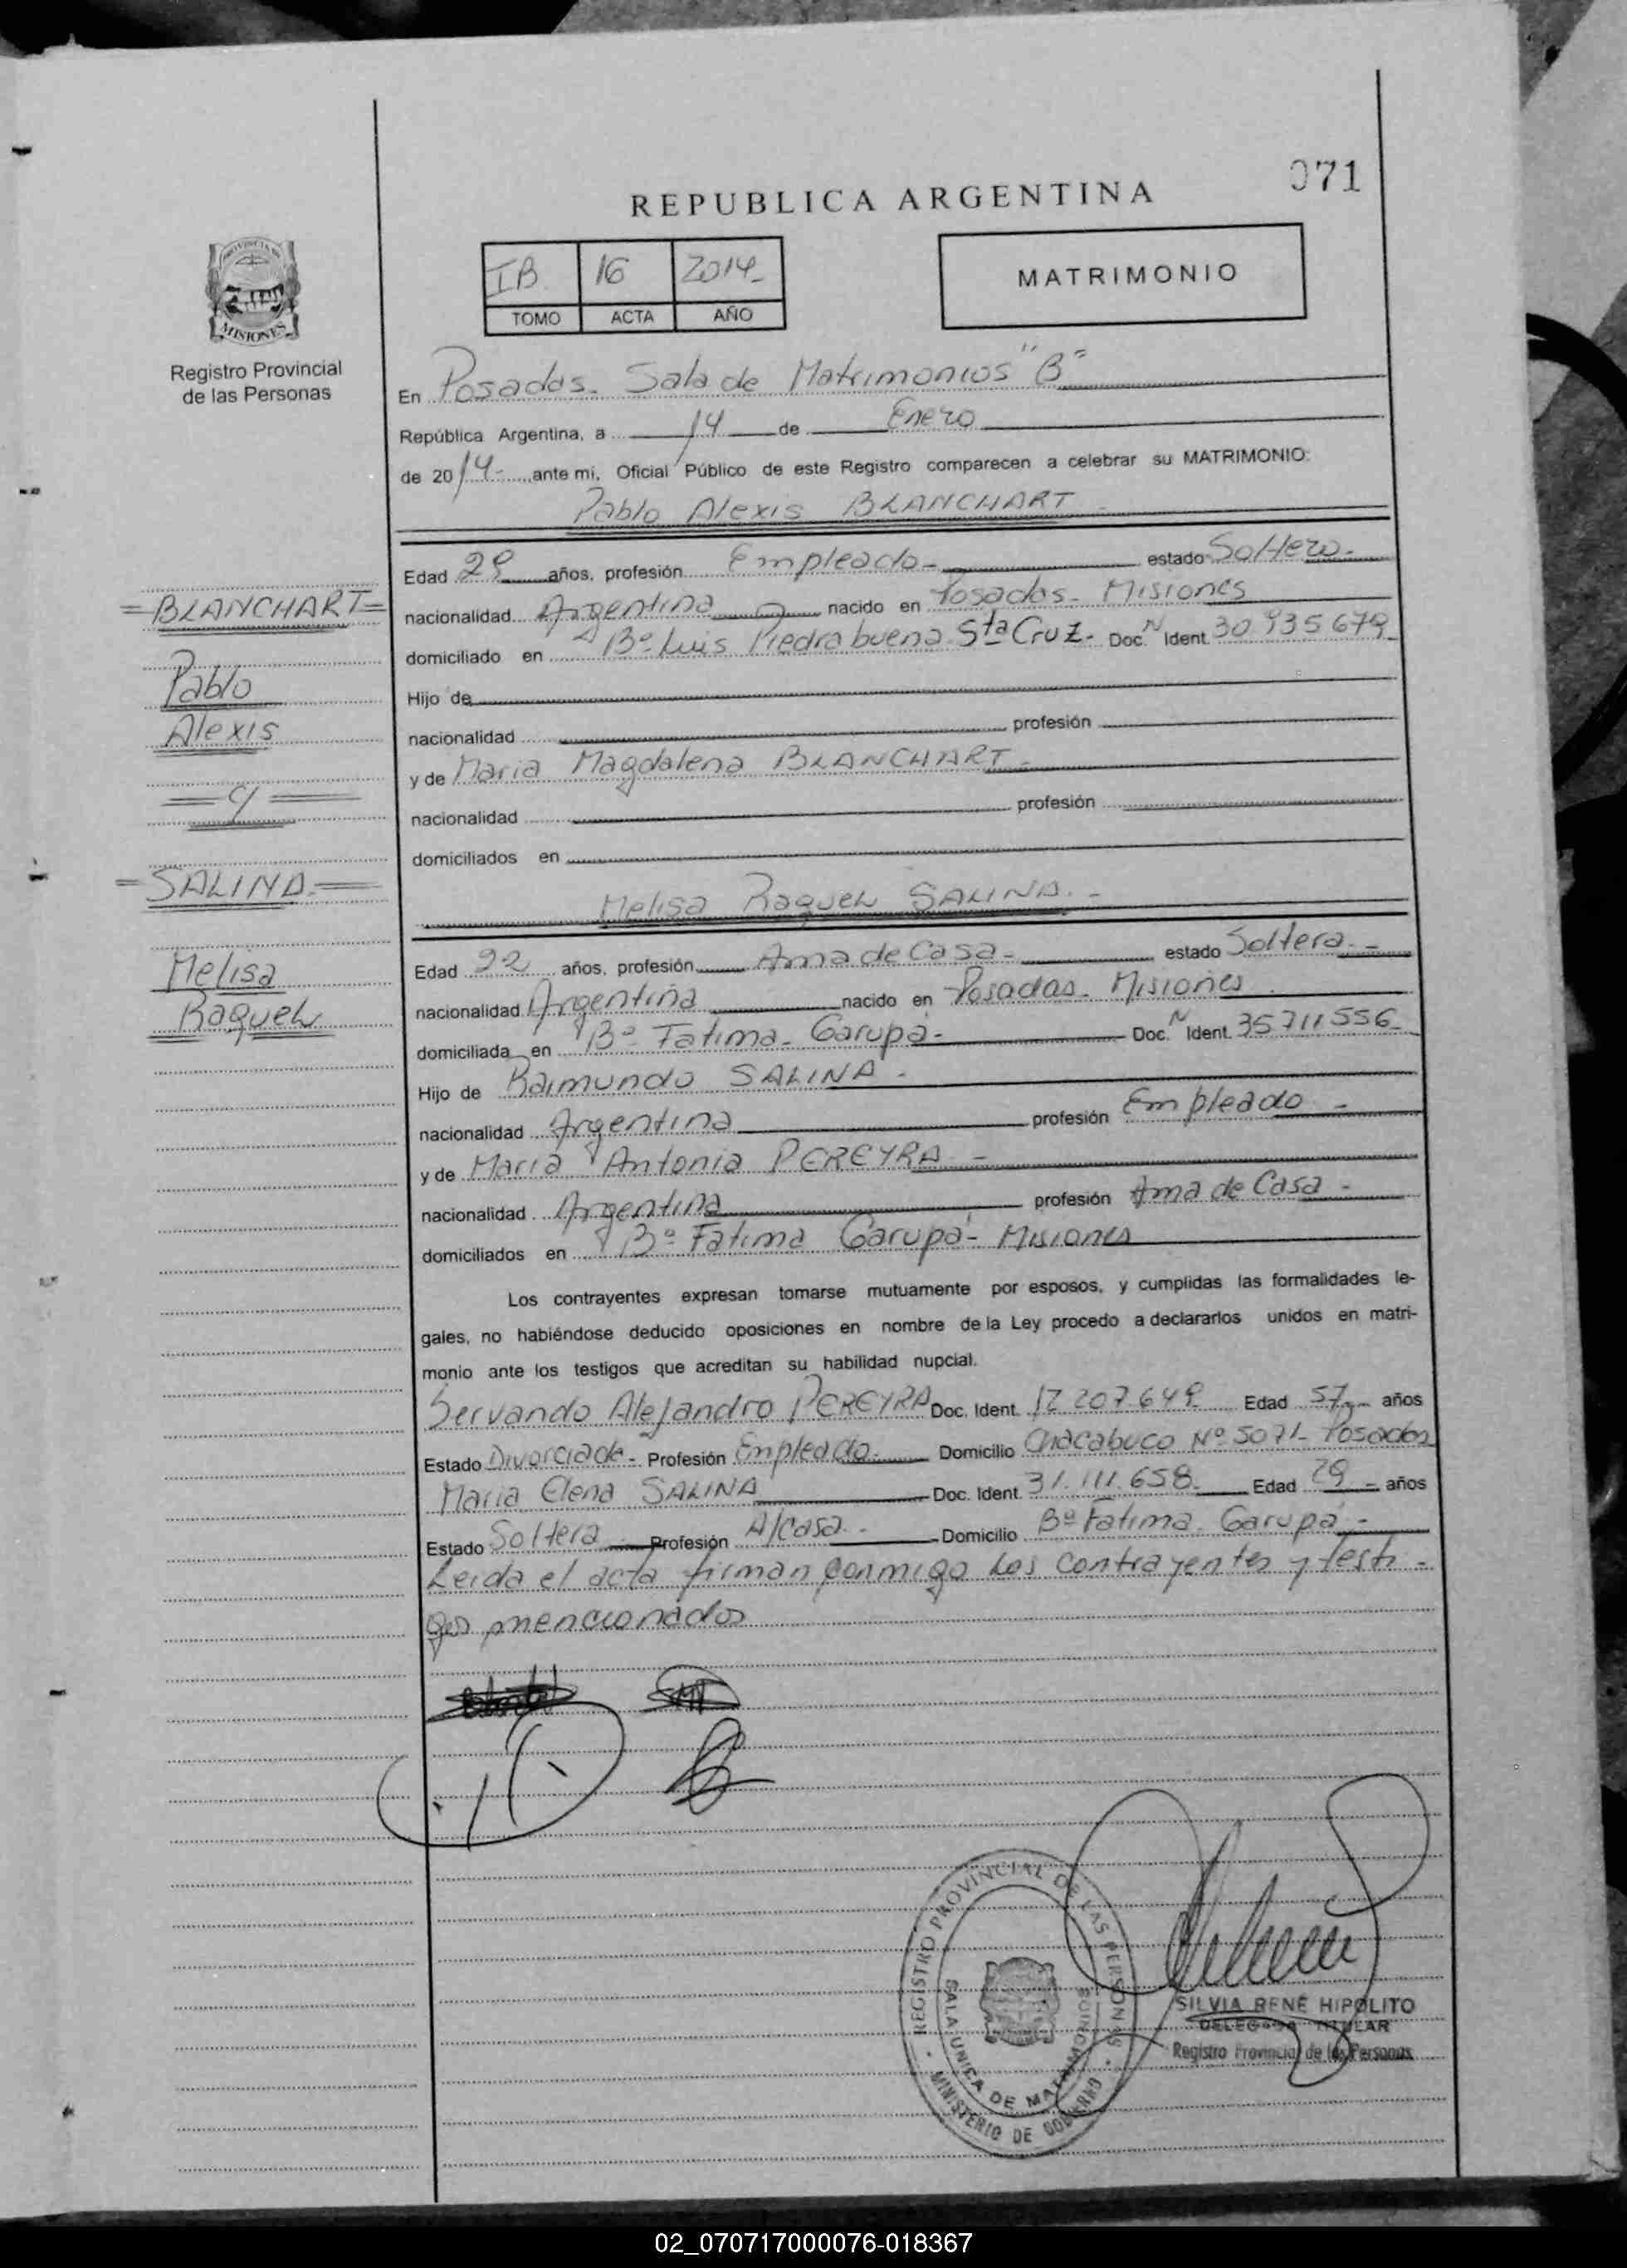 071
REPUBLICA ARGENTINA
IB 16 2014-
TOMO ACTA AÑO
MATRIMONIO
PROVINCIA DE
MISIONES
Registro Provincial
de las Personas
En Posadas- Sala de Matrimonios "B"
República Argentina, a 14 de Enero
de 2014- ante mi, Oficial Público de este Registro comparecen a celebrar su MATRIMONIO:
Pablo Alexis BLANCHART
Edad 29 años, profesión Empleado- estado Soltero-
nacionalidad Argentina nacido en Posadas- Misiones
domiciliado en Bº Luis Piedra buena Sta Cruz- Doc. N Ident. 30 935 679
Hijo de
nacionalidad profesión
y de Maria Magdalena BLANCHART-
nacionalidad profesión
domiciliados en
Melisa Raquel SALINA.-
Edad 22 años, profesión Ama de Casa- estado Soltera.-
nacionalidad Argentina nacido en Posadas- Misiones
domiciliada en Bº Fatima- Garupa- Doc. N Ident. 35 711 556
Hijo de Raimundo SALINA-
nacionalidad Argentina profesión Empleado-
y de Maria Antonia PEREYRA-
nacionalidad Argentina profesión Ama de Casa-
domiciliados en Bº Fatima Garupá- Misiones
Los contrayentes expresan tomarse mutuamente por esposos, y cumplidas las formalidades le-
gales, no habiéndose deducido oposiciones en nombre de la Ley procedo a declararlos unidos en matri-
monio ante los testigos que acreditan su habilidad nupcial.
Servando Alejandro PEREYRA Doc. Ident. 12 207 649 Edad 57- años
Estado Divorciado- Profesión Empleado- Domicilio Chacabuco Nº 5071- Posadas
Maria Elena SALINA Doc. Ident. 31.111.658 Edad 29- años
Estado Soltera Profesión A/casa.- Domicilio Bº Fatima- Garupá-
Leida el acta firman conmigo Los contrayentes y testi-
gos mencionados
=BLANCHART=
Pablo
Alexis
=y=
=SALINA=
Melisa
Raquel
REGISTRO PROVINCIAL DE LAS PERSONAS
SALA UNICA DE MATRIMONIOS
MINISTERIO DE GOBIERNO
SILVIA RENE HIPOLITO
DELEGADA TITULAR
Registro Provincial de las Personas
02_070717000076-018367